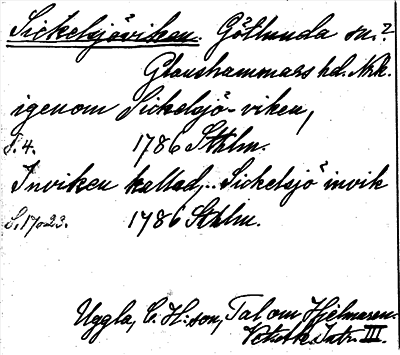 Sickelsjöviken. Götlunda sn.?
Glanshammars hd. Nrk.
igenom Sickelsjö-viken,
S. 4. 1786 Sthlm.
Inviken kallad,.. Sickelsjö invik
S. 17 o 23. 1786 Sthlm.
Uggla, C. H:son, Tal om Hjelmaren.
Vitterh. Intr. III.